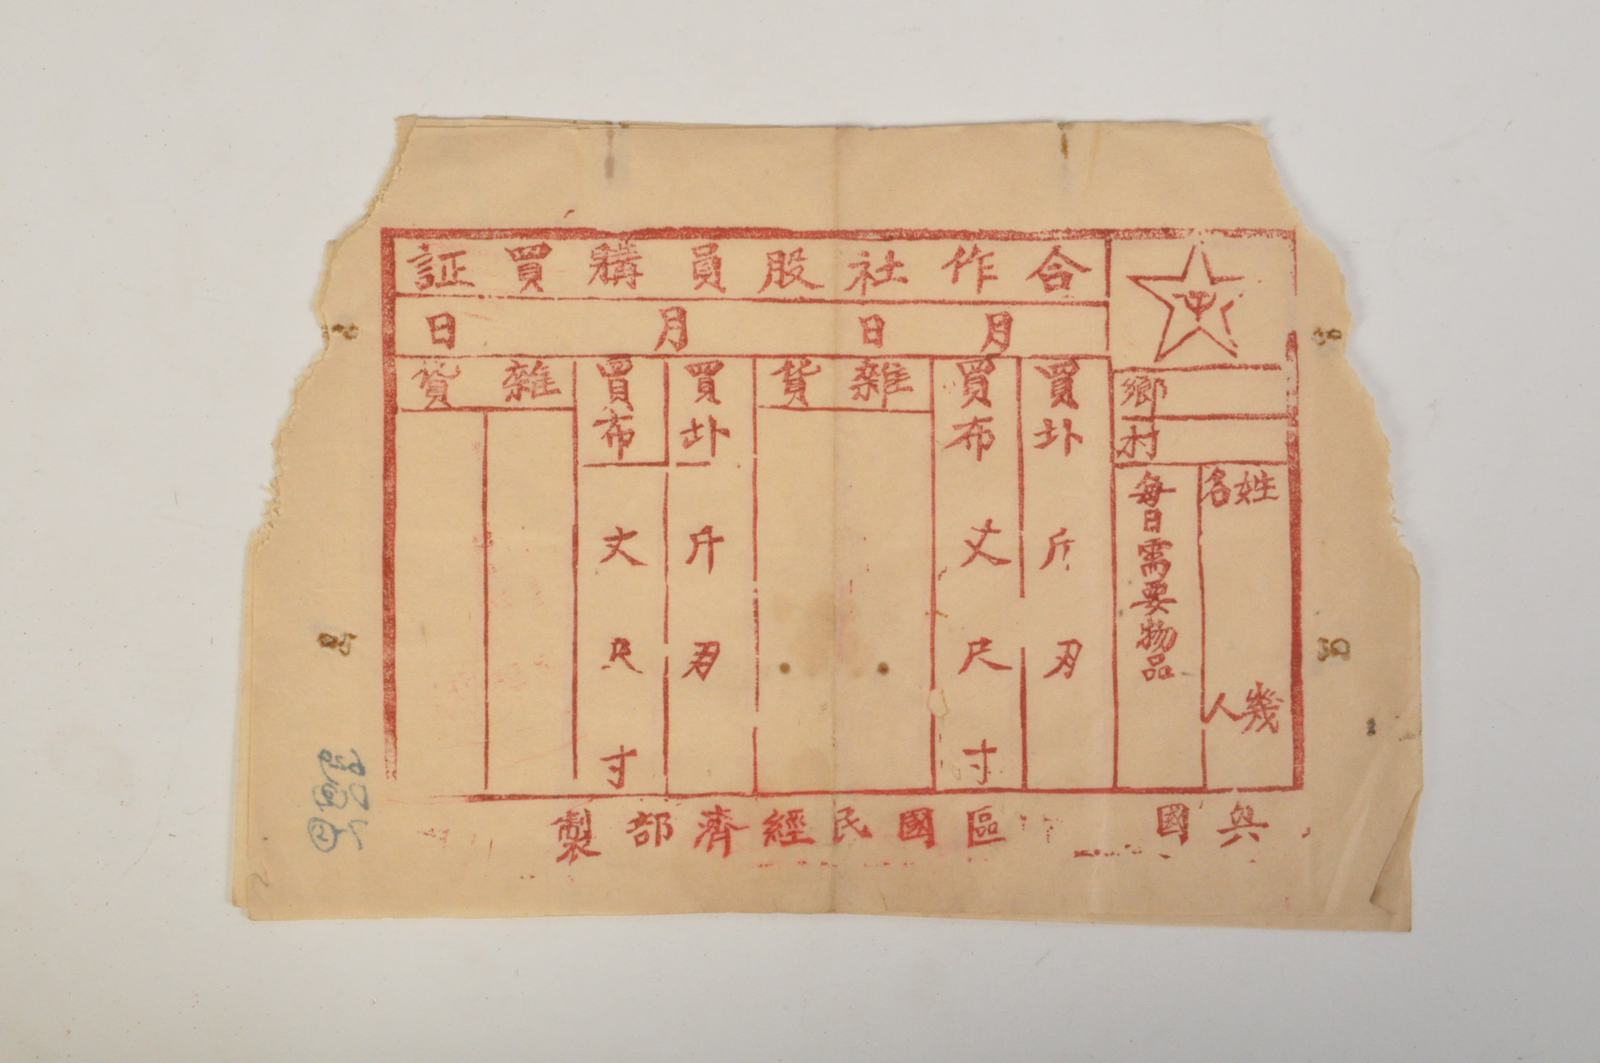 合作社股員購買証
月 日 月 日
鄉
村
姓名 幾人
每日需要物品
買圤 斤 刃
買布 丈 尺 寸
雜貨
買圤 斤 刃
買布 丈 尺 寸
雜貨
興國 區國民經濟部製